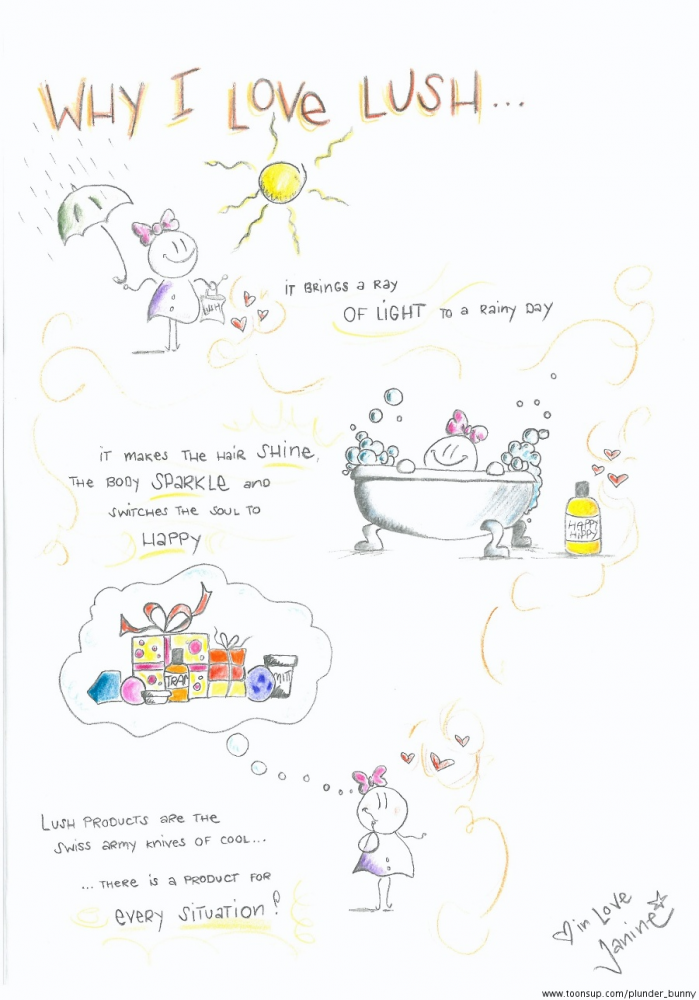 WHY I LOVE LUSH...
LUSH
iT BRiNGS a RaY
OF LiGHT TO a RaiNY DaY
iT makes THe HaiR SHiNe,
THe BODY SPaRKLe aND
SWiTCHeS THe SOUL TO
HaPPY
HAPPY
HiPPY
TRAMP
LUSH PRODUCTS aRe THe
SWiSS aRMY KNiVeS OF COOL...
...THeRe iS a PRODUCT FOR
eveRY SiTUaTiON!
in Love
Janine
www.toonsup.com/plunder_bunny